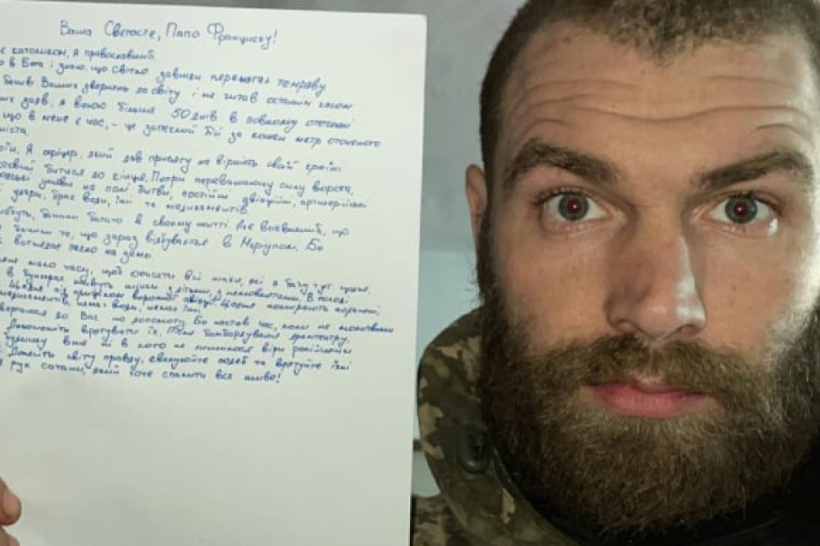 Ваша Святосте, Папо Франциску!
є католиком, я православний.
в Бога і знаю, що світло завжди перемагає темряву
бачив Ваших звернень до світу і не читав останнім часом
заяв, я воюю більше 50 днів в повному оточенні
що в мене є час, - це запеклий бій за кожен метр оточеного
міста.
Я офіцер, який дав присягу на вірність своїй країні
битися до кінця. Попри переважаючу силу ворога,
умови на полі битви, постійні авіаційні, артилерійські
удари, брак води, їжі та медикаментів
багато в своєму житті. Але впевнений, що
бачили те, що зараз відбувається в Маріуполі. Бо
виглядає пекло на землі.
мало часу, щоб описати всі жахи, які я бачу тут щодня.
в бункерах живуть жінки з дітьми, з немовлятами. В голоді
Щодня під прицілом ворожої авіації. Щодня помирають поранені,
медикаментів, немає води, немає їжі.
до Вас по допомогу. Бо настав час, коли не молитвами
Допоможіть врятувати їх. Після бомбардування драмтеатру,
вже ні в кого не лишилося віри російським
Донесіть світу правду, евакуюйте людей та врятуйте їхні
рук сатани, який хоче спалити все живе!